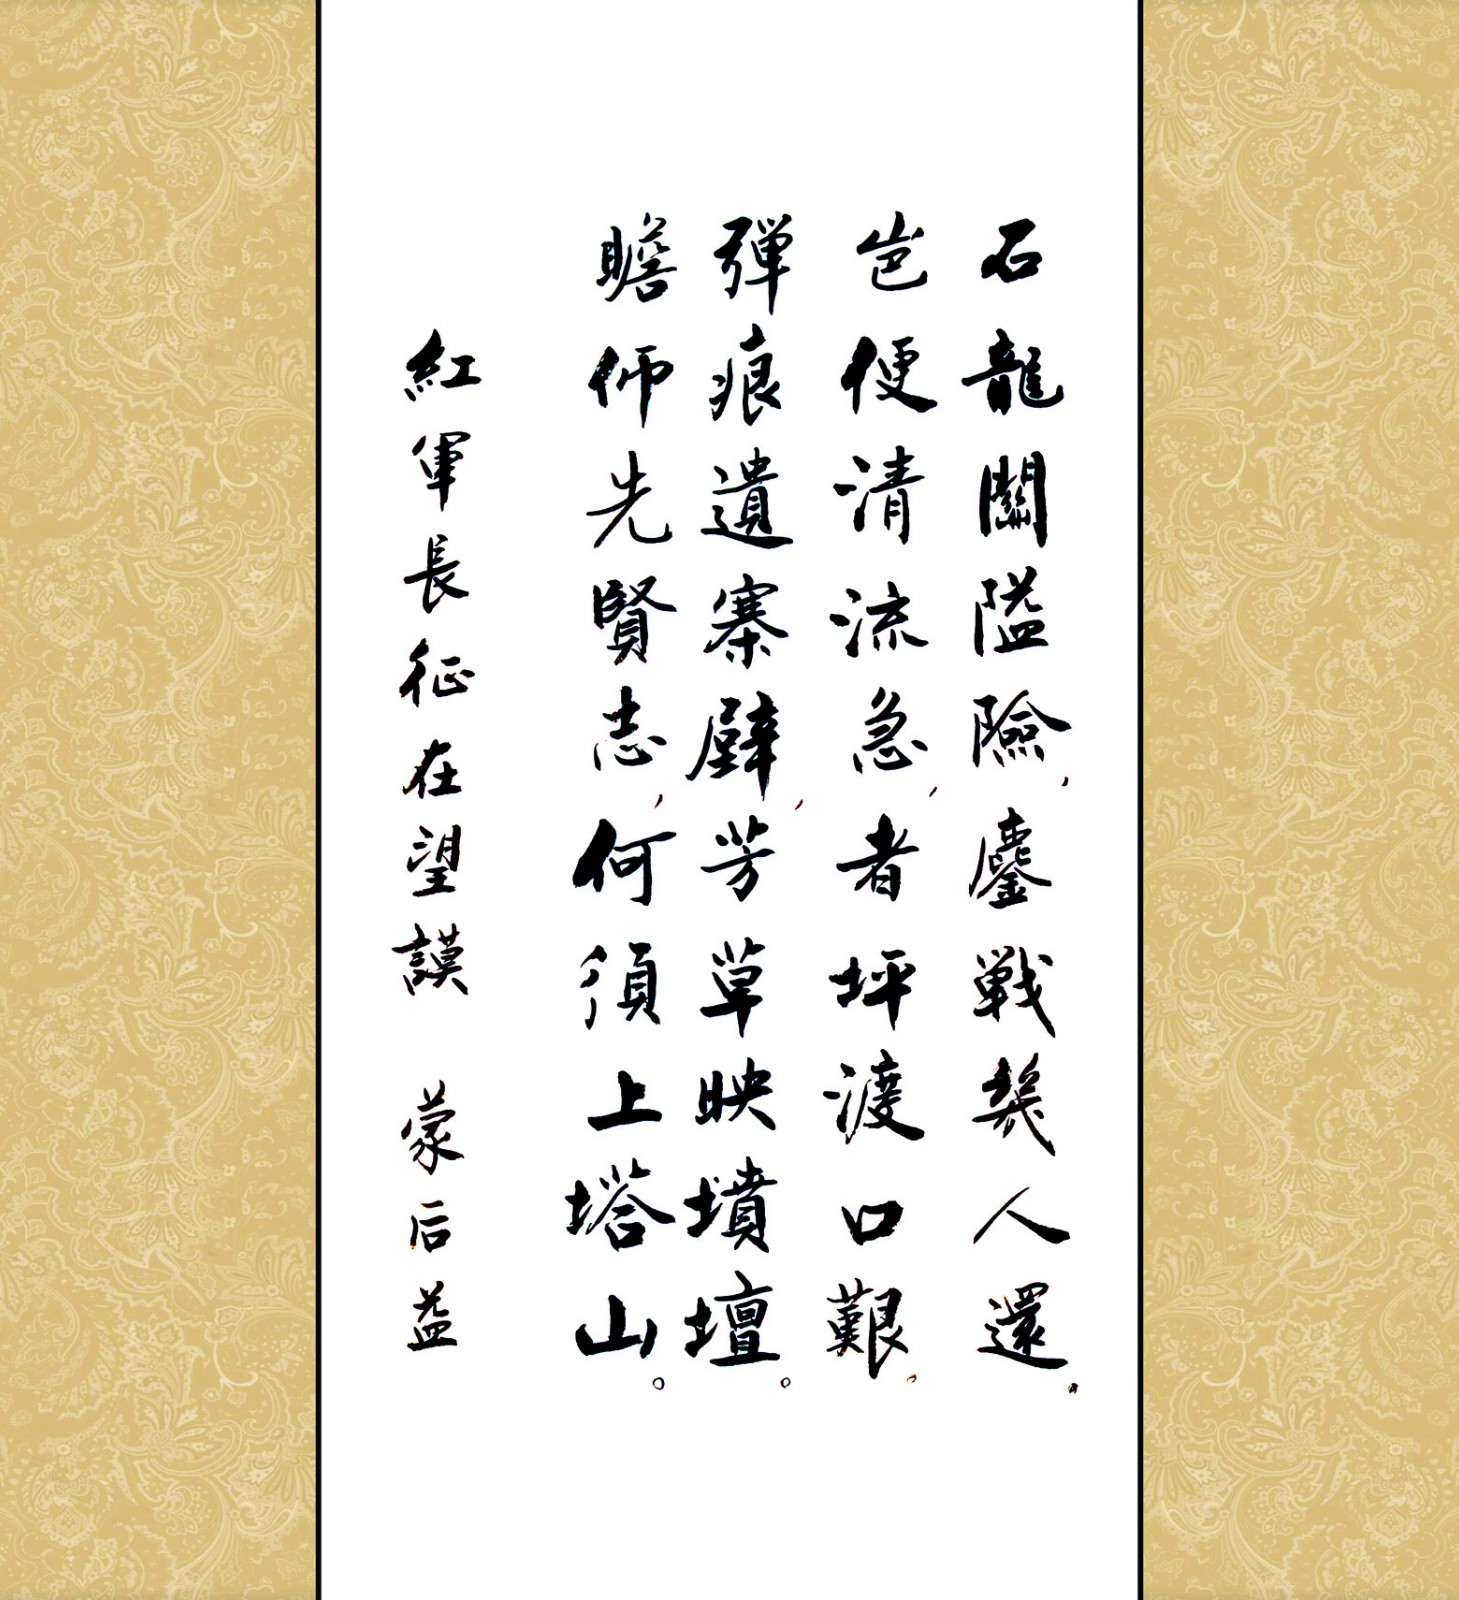 石龍關隘險，鏖戦幾人還。
岂便清流急，者坪渡口艱，
弾痕遺寨壁，芳草映墳壇。
瞻仰先賢志，何須上塔山。
紅軍長征在望謨 蒙后益